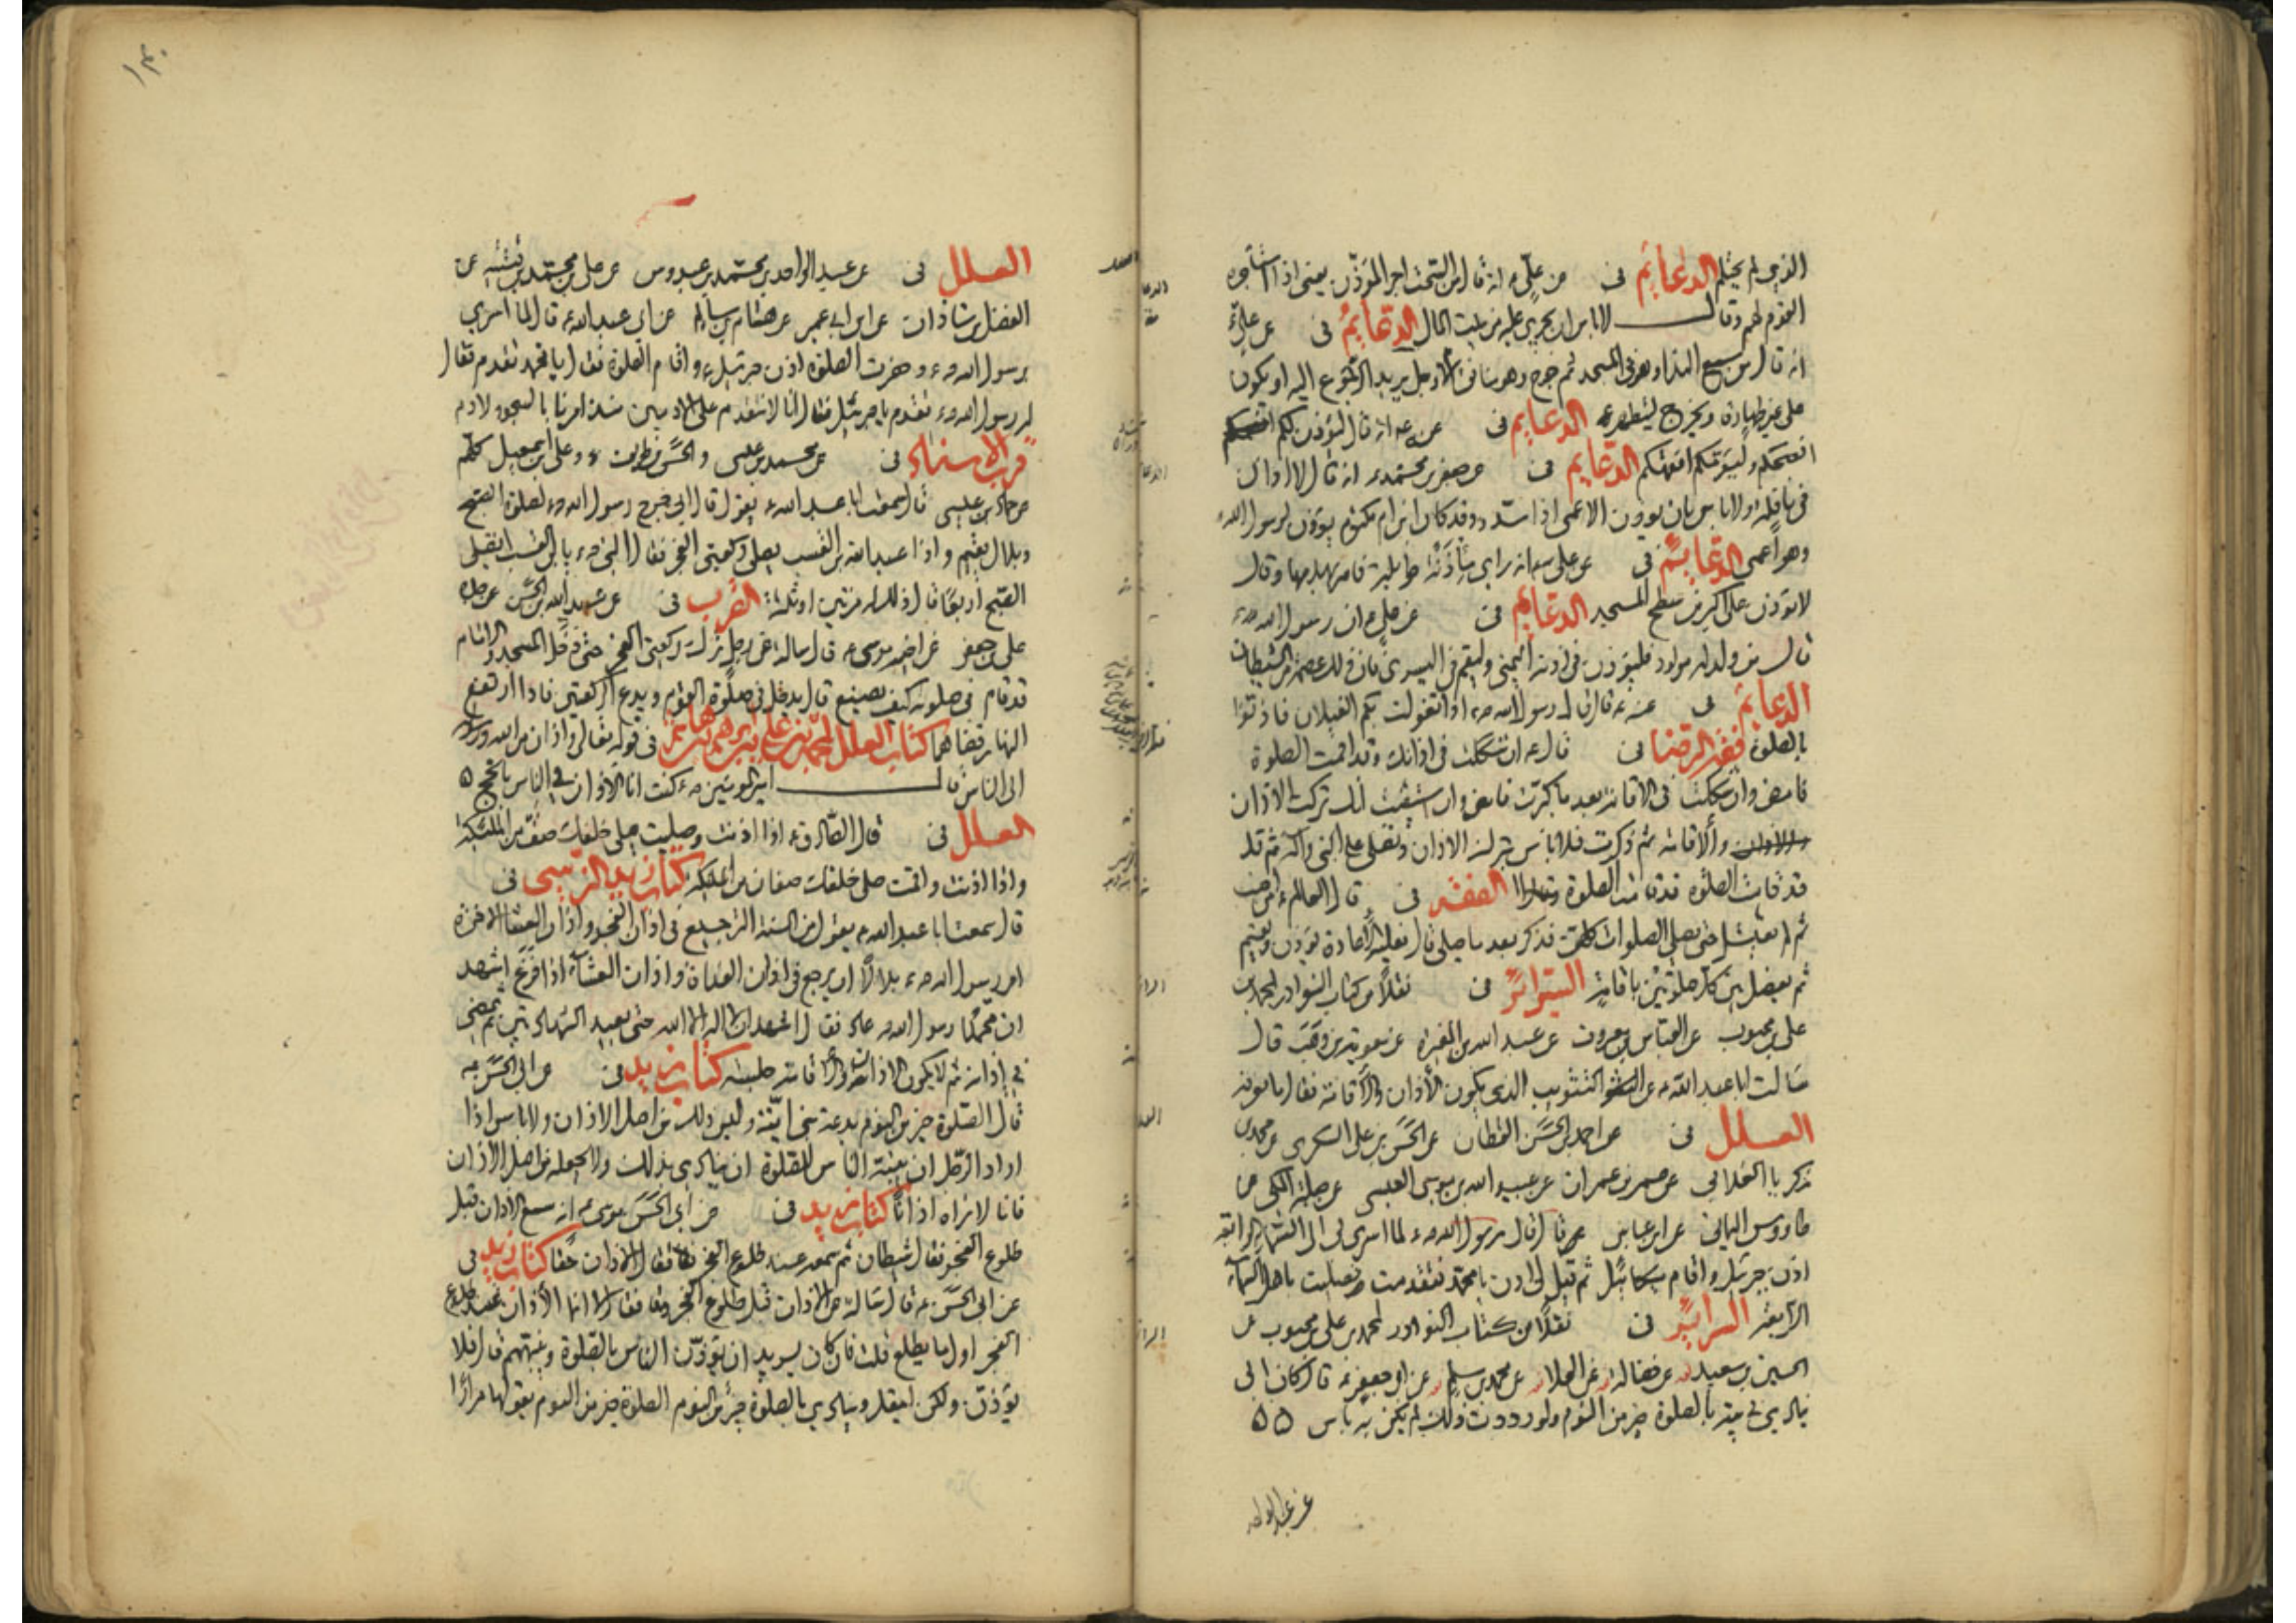 الذي لم يحتلم الدعايم في عن علي ع انه قال من السحت اجر المؤذن يعني اذا استاجره
القوم لهم وقال لا باس ان يجري عليه من بيت المال الدعايم في عن علي ع
انه قال من سمع النداء وهو في المسجد ثم خرج فهو منافق الا رجل يريد الرجوع اليه او يكون
على غير طهارة ويخرج ليتطهر الدعايم في عنه ع انه قال ليؤذن لكم
افصحكم وليؤمكم افقهكم الدعايم في عن جعفر بن محمد ع انه قال لا اذان
في نافلة ولا باس بان يؤذن الاعمى اذا سدد وقد كان ابن ام مكتوم يؤذن لرسول الله ص
وهو اعمى الدعايم في عن علي ع انه راى مئذنة طويلة فامر بهدمها وقال
لا يؤذن على اكبر من سطح المسجد الدعايم في عن علي ع ان رسول الله ص
قال من ولد له مولود فليؤذن في اذنه اليمنى وليقم في اليسرى فان ذلك عصمة من الشيطان
الدعايم في عنه ع قال قال رسول الله ص اذا تغولت بكم الغيلان فاذنوا
بالصلوة فقه الرضا في قال ع ان شككت في اذانك وقد اقمت الصلوة
فامض وان شككت في الاقامة بعد ما كبرت فامض وان استيقنت انك تركت الاذان
والاقامة ثم ذكرت فلا باس بترك الاذان وتصلي على النبي واله ثم قل
قد قامت الصلوة قد قامت الصلوة الفقه في قال العالم ع
ثم لم يصل حتى يصلي الصلوات كلها فذكر بعد ما صلى قال فعليه الاعادة يؤذن ويقيم
ثم يفصل بين كل صلوتين باقامة السرائر في نقلا من كتاب النوادر لمحمد بن
علي بن محبوب عن العباس بن معروف عن عبد الله بن المغيرة عن معوية بن وهب قال
سالت ابا عبد الله ع عن التثويب الذي يكون بين الاذان والاقامة فقال ما نعرفه
العلل في عن احمد بن الحسن القطان عن الحسن بن علي السكري عن محمد بن
زكريا الغلابي عن عمر بن عمران عن عبيد الله بن موسى العبسي عن جبلة المكي عن
طاووس اليماني عن ابن عباس قال قال رسول الله ص لما اسري بي الى السماء الرابعة
اذن جبرئيل واقام ميكائيل ثم قيل لي ادن يا محمد فتقدمت فصليت باهل السماء
الرابعة السرائر في نقلا من كتاب النوادر لمحمد بن علي بن محبوب عن
الحسين بن سعيد عن فضالة عن العلا عن محمد بن مسلم عن ابي جعفر ع قال كان ابي
ينادي في بيته بالصلوة خير من النوم ولو رددت ذلك لم يكن به باس ۵۵
عن عبد الواحد
العلل في عن عبد الواحد بن محمد بن عبدوس عن علي بن محمد بن قتيبة عن
الفضل بن شاذان عن ابن ابي عمير عن هشام بن سالم عن ابي عبد الله ع قال لما اسري
برسول الله ص وحضرت الصلوة اذن جبرئيل ع واقام الصلوة فقال يا محمد تقدم فقال
له رسول الله ص تقدم يا جبرئيل فقال انا لا نتقدم على الادميين منذ امرنا بالسجود لادم
قرب الاسناد في عن محمد بن عيسى والحسن بن ظريف وعلي بن اسمعيل كلهم
عن حماد بن عيسى قال سمعت ابا عبد الله ع يقول قال ابي خرج رسول الله ص لصلوة الصبح
وبلال يقيم واذا عبد الله بن القشب يصلي ركعتي الفجر فقال النبي ص يا ابن القشب اتصلي
الصبح اربعا قال ذلك له مرتين او ثلثة القرب في عن عبد الله بن الحسن عن جده
علي بن جعفر عن اخيه موسى ع قال سالته عن رجل ترك ركعتي الفجر حتى دخل المسجد والامام
قد قام في صلوته كيف يصنع قال يدخل في صلوة القوم ويدع الركعتين فاذا ارتفع
النهار قضاهما كتاب العلل لمحمد بن علي بن ابرهيم بن هاشم في قوله تعالى واذان من الله ورسوله
الى الناس قال امير المؤمنين ع كنت انا الاذان في الناس بالحج ۵
العلل في قال الصادق ع اذا اذنت وصليت صلى خلفك صف من الملئكة
واذا اذنت واقمت صلى خلفك صفان من الملئكة كتاب زيد النرسي في
قال سمعت ابا عبد الله ع يقول من السنة الترجيع في اذان الفجر واذان العشا الاخرة
امر رسول الله ص بلالا ان يرجع في اذان الغداة واذان العشاء اذا فرغ اشهد
ان محمدا رسول الله ص عاد فقال اشهد ان لا اله الا الله حتى يعيد الشهادتين ثم يمضي
في اذانه ثم لا يكون بين الاذان والاقامة الا جلسة كتاب زيد في عن ابي الحسن ع
قال الصلوة خير من النوم بدعة بني امية وليس ذلك من اصل الاذان ولا باس اذا
اراد الرجل ان ينبه الناس للصلوة ان ينادي بذلك ولا يجعله من اصل الاذان
فانا لا نراه اذانا كتاب زيد في عن ابي الحسن موسى ع انه سمع الاذان قبل
طلوع الفجر فقال شيطان ثم سمعه عند طلوع الفجر فقال الاذان حقا كتاب زيد في
عن ابي الحسن ع قال سالته عن الاذان قبل طلوع الفجر فقال لا انما الاذان عند طلوع
الفجر اول ما يطلع قلت فان كان يريد ان يؤذن الناس بالصلوة وينبههم قال فلا
يؤذن ولكن ليقل وينادي بالصلوة خير من النوم الصلوة خير من النوم يقولها مرارا